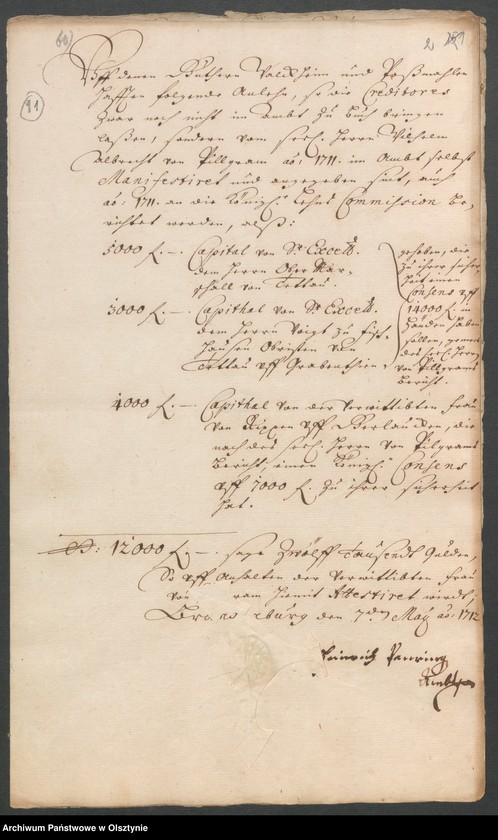 60)
2 259
91
Uff denen Güthern Waldtheim und Poßmahlen
hafften folgende Anlehn, so die Creditores
zwar noch nicht im Ambt zu Buch bringen
laßen, sondern vom seel. Herrn Wilhelm
Albrecht von Pillgram aō: 1711. im Ambt selbst
Manifestiret und angegeben sint, auch
aō: 1711. an die Königl. Lehns Commission be-
richtet worden, alß:
5000 f. —. Capital von Sr. Excell.
dem Herrn Ober Mar-
schall von Tettau.
3000 f. —. Capithal von Sr. Excell.
dem Herrn Voigt zu Fisch-
hausen Obristen von
Tettau uff
gehoben, die
zu ihrer sicher-
heit einen
Consens uff
14000 f. in
Händen haben
sollen, gemeß
des seel. Herrn
von Pillgrams
Bericht.
4000 f. —. Capithal von der verwittibten Frau
von Kippen uff, die
nach des seel. Herrn von Pilgrams
Bericht, einen Königl. Consens
uff 7000 f. zu ihrer sicherheit
hat.
S: 12000 f. —. sage Zwölff Tausendt Gulden,
So uff Anhalten der verwittibten Frau
von hiemit Attestiret wirdt,
burg den 7den May aō: 1712
Heinrich
Archiwum Państwowe w Olsztynie